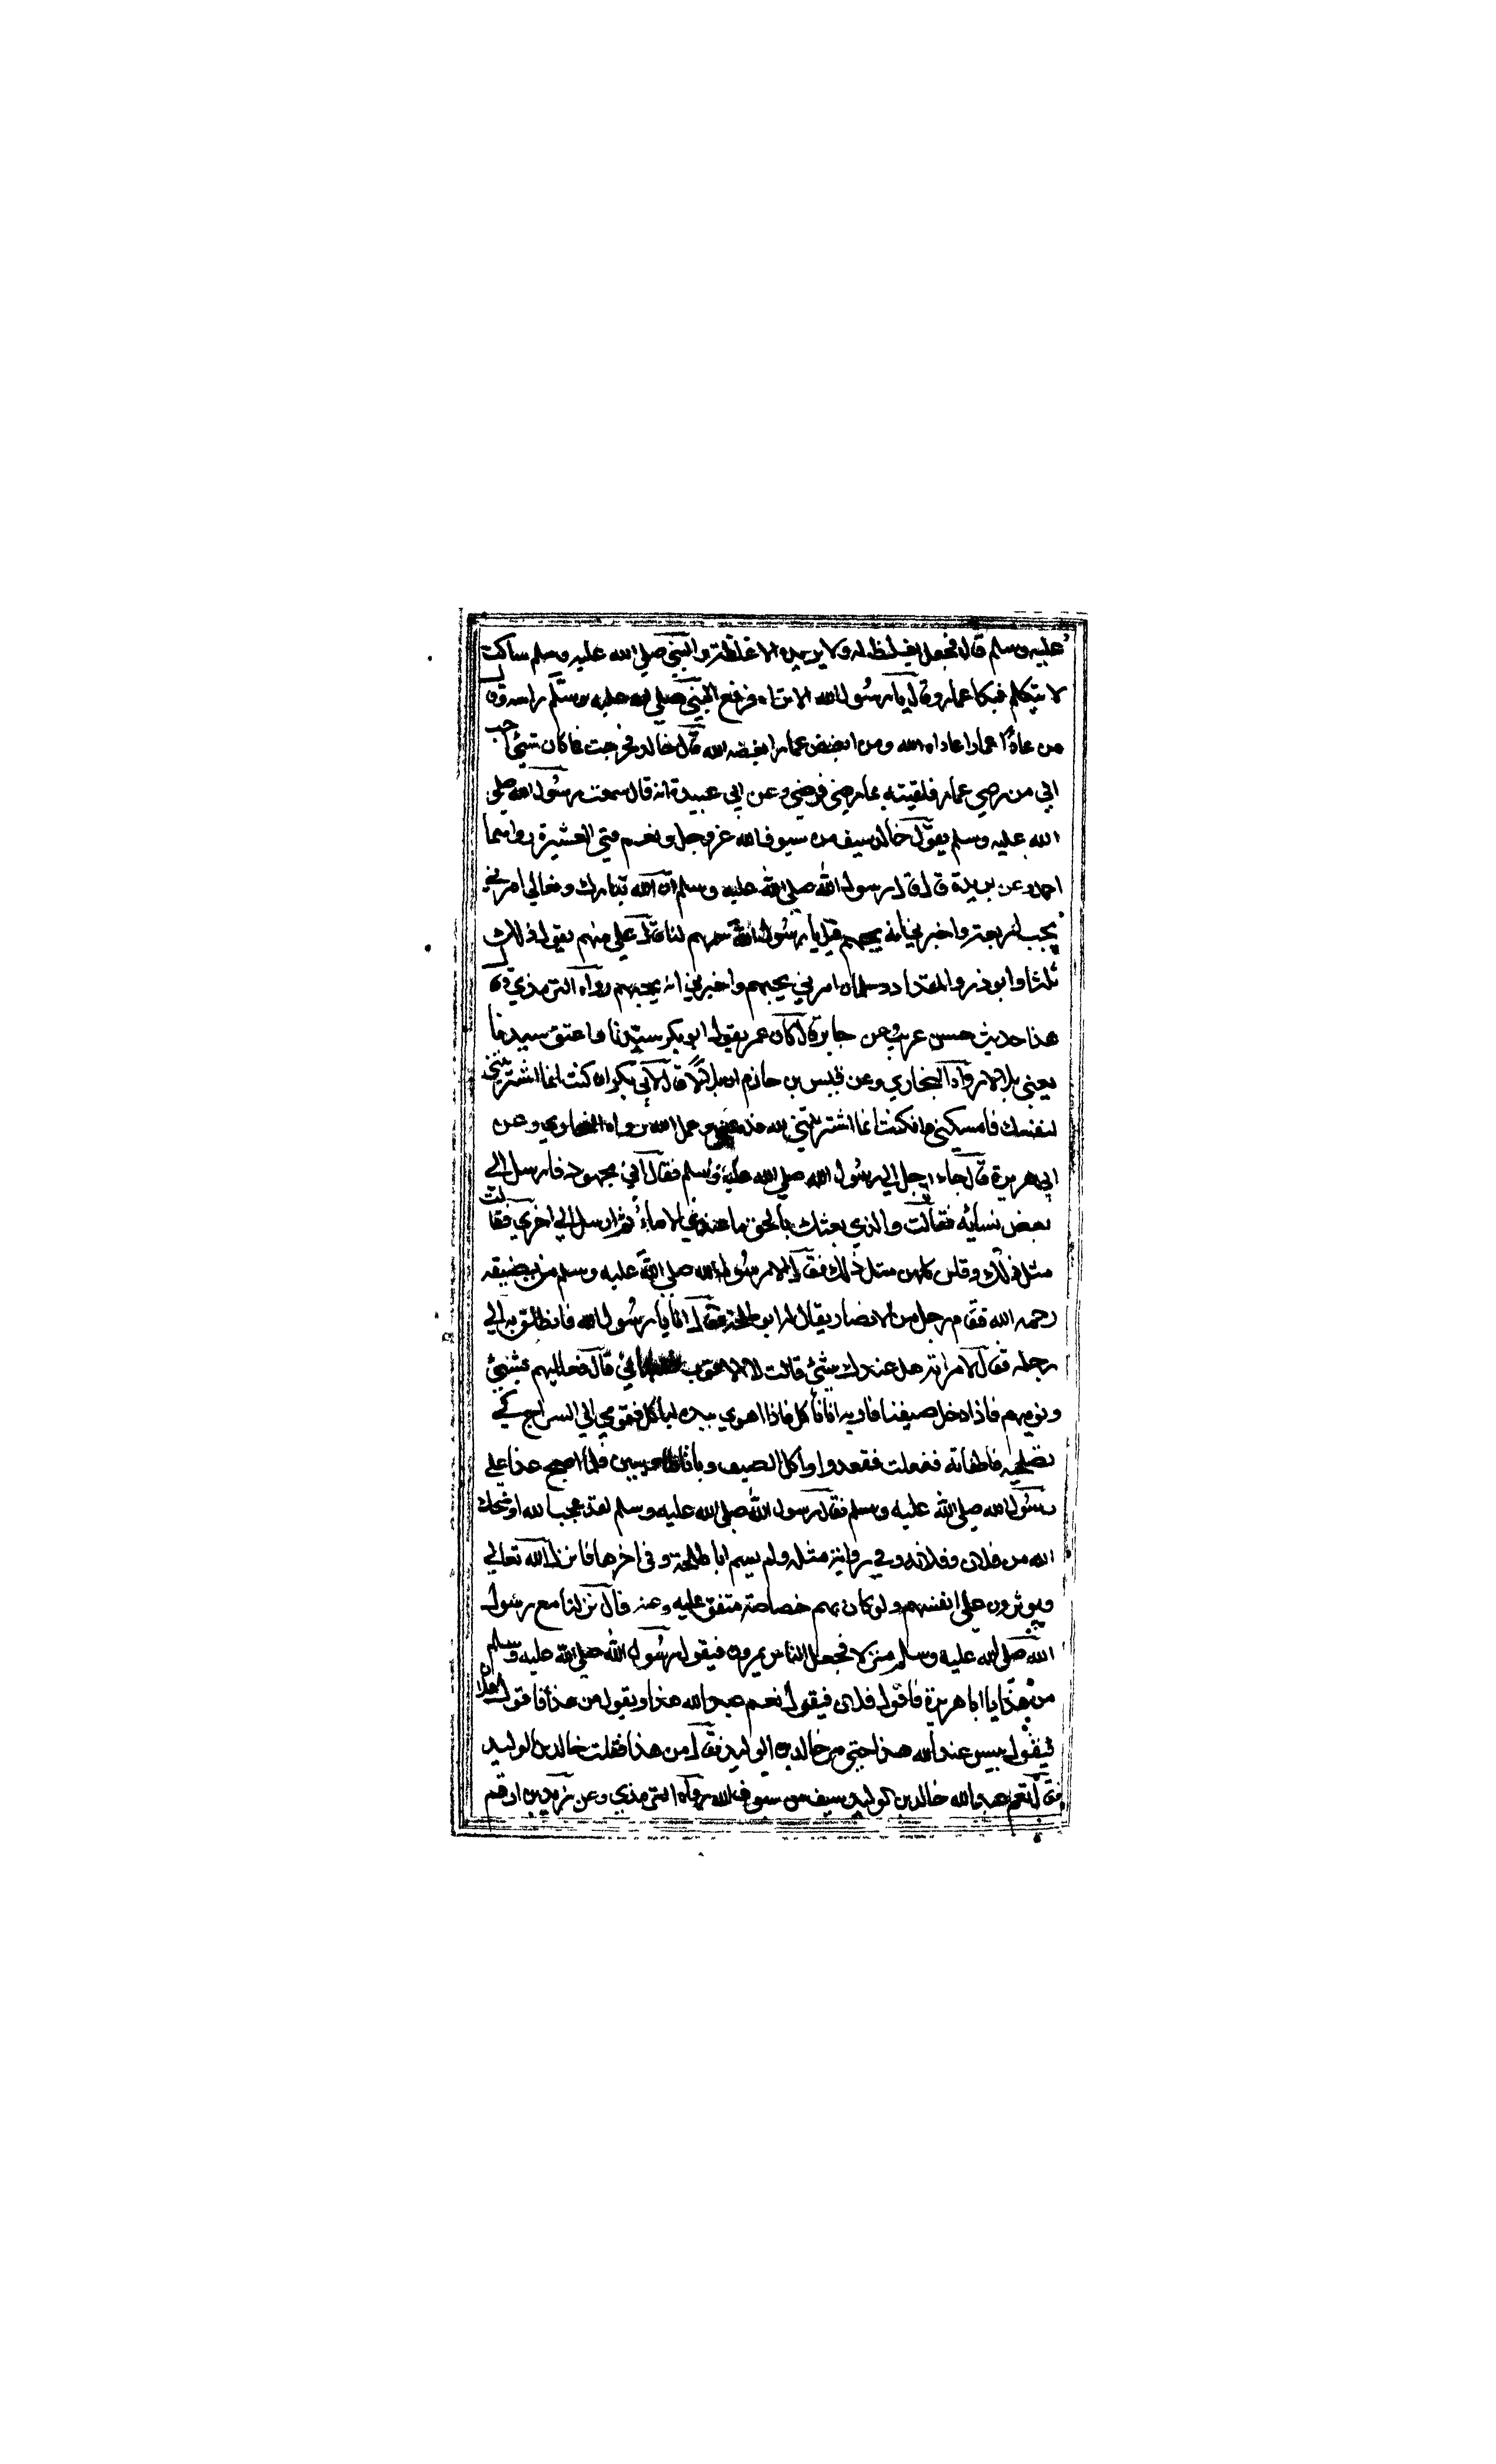 عليه وسلم قال فجعل يغلظ له ولا يزيده الا غلظة والنبي صلي الله عليه وسلم ساكت
لا يتكلم فبكا عمار وقال يا رسول الله الا تراه فرفع النبي صلي الله عليه وسلم راسه وقال
من عادا عمارا عاداه الله ومن ابغض عمارا ابغضه الله قال خالد فخرجت فما كان شئ احب
الي من رضي عمار فلقيته بما رضي فرضي وعن ابي عبيدة انه قال سمعت رسول الله صلي
الله عليه وسلم يقول خالد سيف من سيوف الله عز وجل ونعم فتي العشيرة رواهما
احمد وعن بريدة قال قال رسول الله صلي الله عليه وسلم ان الله تبارك وتعالي امرني
بحب اربعة واخبرني انه يحبهم قيل يا رسول الله سمهم لنا قال علي منهم يقول ذلك
ثلثا وابو ذر والمقداد وسلمان امرني بحبهم واخبرني انه يحبهم رواه الترمذي وقال
هذا حديث حسن غريب وعن جابر قال كان عمر يقول ابو بكر سيدنا واعتق سيدنا
يعني بلالا رواه البخاري وعن قيس بن حازم ان بلالا قال لابي بكر ان كنت انما اشتريتني
لنفسك فامسكني وان كنت انما اشتريتني لله فدعني وعمل الله رواه البخاري وعن
ابي هريرة قال جاء رجل الي رسول الله صلي الله عليه وسلم فقال اني مجهود فارسل الي
بعض نسائه فقالت والذي بعثك بالحق ما عندي الا ماء ثم ارسل الي اخري فقالت
مثل ذلك وقلن كلهن مثل ذلك فقال رسول الله صلي الله عليه وسلم من يضيفه
رحمه الله فقام رجل من الانصار يقال له ابو طلحة فقال انا يا رسول الله فانطلق به الي
رحله فقال لامراته هل عندك شئ قالت لا الا قوت صبياني قال فعلليهم بشئ
ونوميهم فاذا دخل ضيفنا فاريه انا ناكل فاذا اهوي بيده لياكل فقومي الي السراج كي
تصلحيه فاطفئيه ففعلت فقعدوا واكل الضيف وباتا طاويين فلما اصبح غدا علي
رسول الله صلي الله عليه وسلم فقال رسول الله صلي الله عليه وسلم لقد عجب الله او ضحك
الله من فلان وفلانة وفي رواية مثله ولم يسم ابا طلحة وفي اخرها فانزل الله تعالي
ويوثرون علي انفسهم ولو كان بهم خصاصة متفق عليه وعنه قال نزلنا مع رسول
الله صلي الله عليه وسلم منزلا فجعل الناس يمرون فيقول رسول الله صلي الله عليه وسلم
من هذا يا ابا هريرة فاقول فلان فيقول نعم عبد الله هذا ويقول من هذا فاقول فلان
فيقول بيس عبد الله هذا حتي مر خالد بن الوليد فقال من هذا فقلت خالد بن الوليد
فقال نعم عبد الله خالد بن الوليد سيف من سيوف الله رواه الترمذي وعن زيد بن ارقم